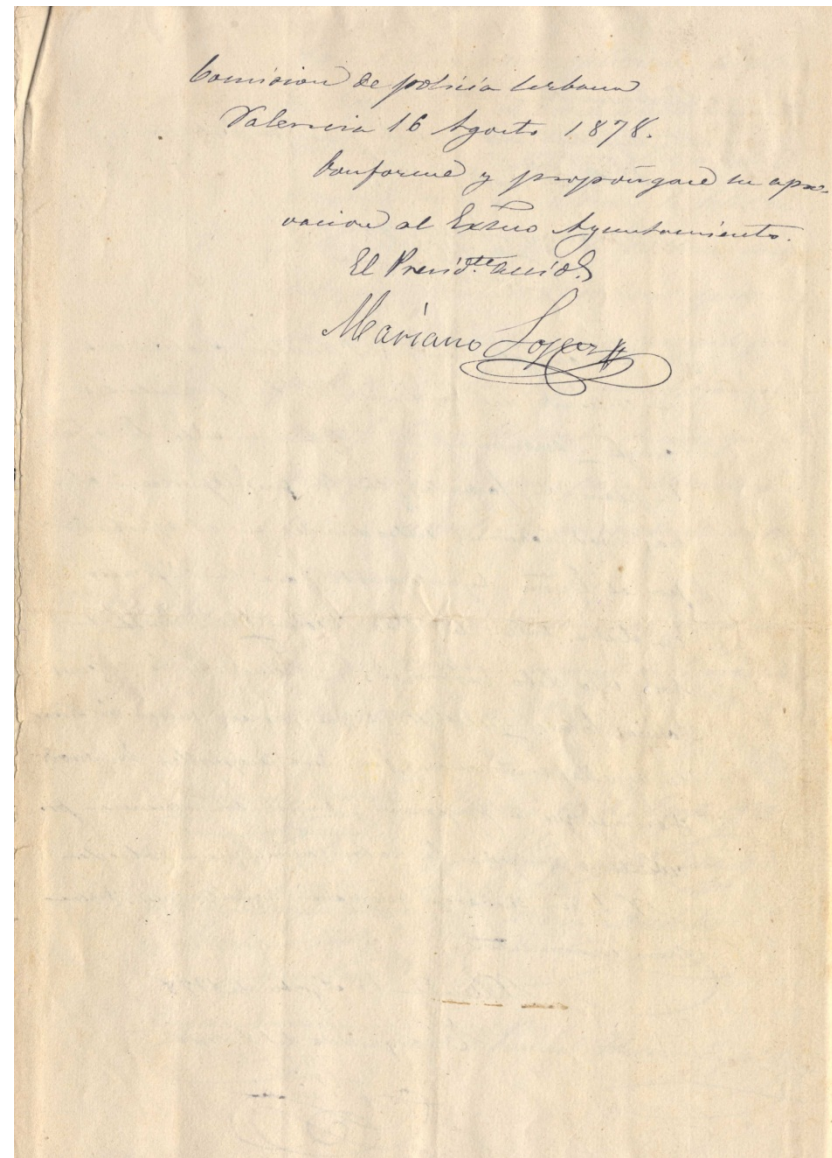 Comision de policia Urbana
Valencia 16 Agosto 1878.
Conforme y propóngase su apro-
vacion al Exmo Ayuntamiento.
El Presid.te accid.l
Mariano Lopez